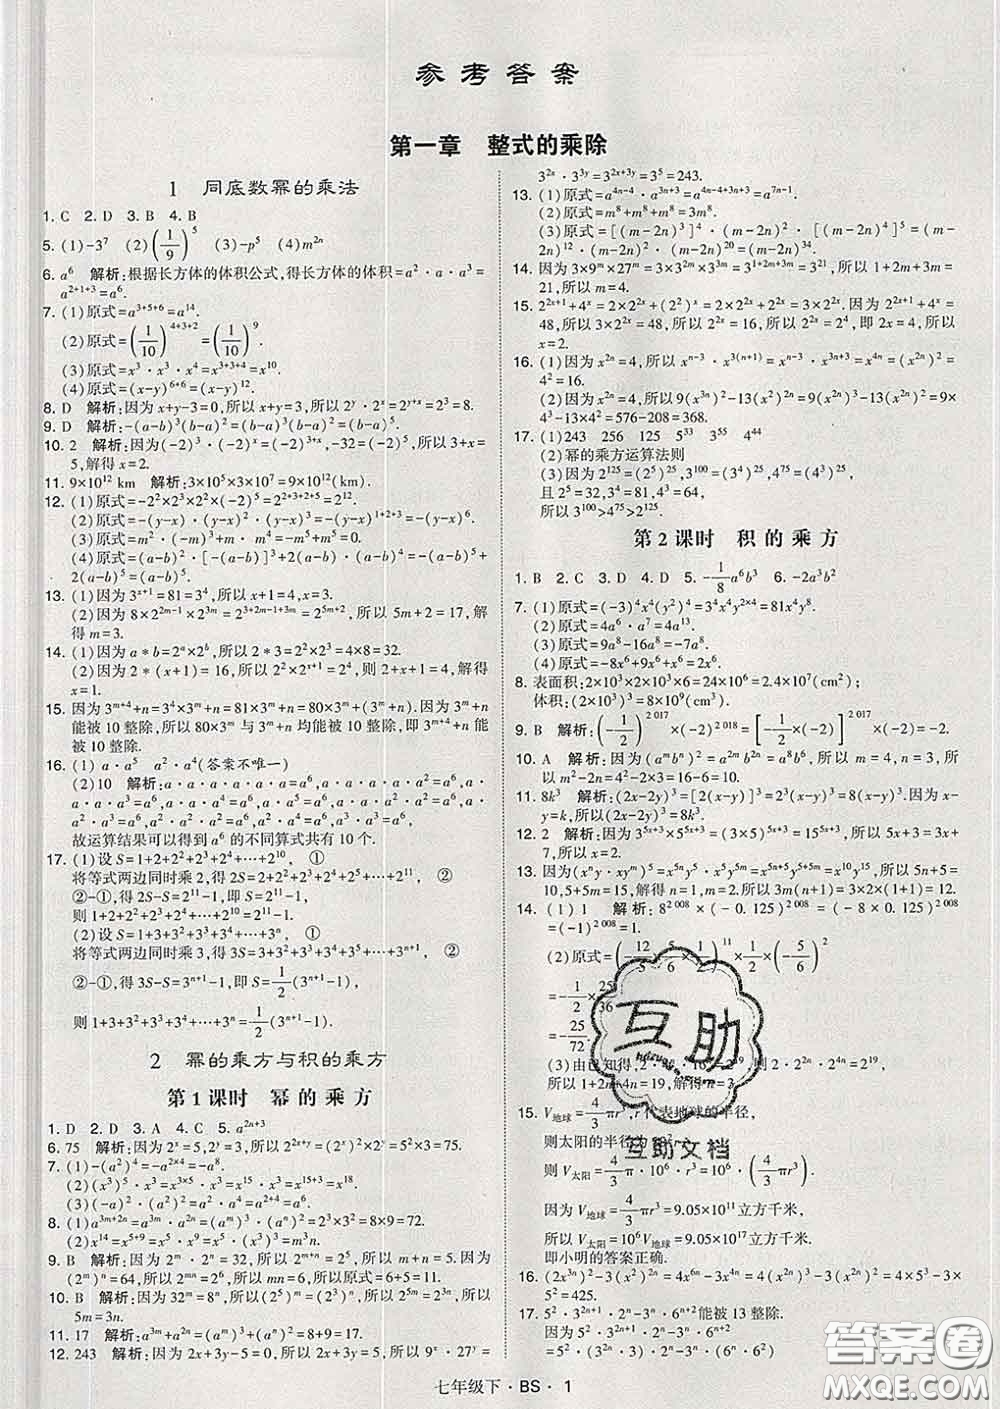 参考答案
第一章　整式的乘除
1　同底数幂的乘法
1. C　2. D　3. B　4. B
5. (1)-3⁷　(2)(1/9)⁵　(3)-p⁵　(4)m²ⁿ
6. a⁶　解析:根据长方体的体积公式,得长方体的体积=a²·a·a³=
a²⁺¹⁺³=a⁶.
7. (1)原式=a³⁺⁵⁺⁶=a¹⁴.
(2)原式=(1/10)⁴⁺³⁺²=(1/10)⁹.
(3)原式=x³·x³·x⁴=x³⁺³⁺⁴=x¹⁰.
(4)原式=(x-y)⁶⁺⁶=(x-y)¹².
8. D　解析:因为x+y-3=0,所以x+y=3,所以2ʸ·2ˣ=2ˣ⁺ʸ=2³=8.
9. D　解析:-(a-b)³(b-a)²=(b-a)³(b-a)²=(b-a)⁵.
10. 2　解析:因为(-2)³·(-2)ˣ=(-2)³⁺ˣ,-32=(-2)⁵,所以3+x=
5,解得x=2.
11. 9×10¹² km　解析:3×10⁵×3×10⁷=9×10¹²(km).
12. (1)原式=-2²×2³×2²×(-2)⁵=2²⁺³⁺²⁺⁵=2¹².
(2)原式=-(y-x)·(y-x)²·(y-x)³=-(y-x)¹⁺²⁺³=-(y-x)⁶.
(3)原式=m²·(-m)³·m·m⁴=-m⁵+m⁵=0.
(4)原式=(a-b)²·[-(a-b)³]+2(a-b)·(a-b)⁴=-(a-b)⁵+
2(a-b)⁵=(a-b)⁵.
13. (1)因为3ˣ⁺¹=81=3⁴,所以x+1=4,解得x=3.
(2)因为8×2²ᵐ⁻¹×2³ᵐ=2³×2²ᵐ⁻¹×2³ᵐ=2¹⁷,所以5m+2=17,解
得m=3.
14. (1)因为a*b=2ᵃ×2ᵇ,所以2*3=2²×2³=4×8=32.
(2)因为2*(x+1)=16,所以2²×2ˣ⁺¹=2⁴,则2+x+1=4,解得
x=1.
15. 因为3ᵐ⁺⁴+n=3⁴×3ᵐ+n=81×3ᵐ+n=80×3ᵐ+(3ᵐ+n),因为3ᵐ+n
能被10整除,所以80×3ᵐ与3ᵐ+n均能被10整除,即3ᵐ⁺⁴+n能
被10整除.
16. (1)a·a⁵　a²·a⁴(答案不唯一)
(2)10　解析:
故运算结果可以得到a⁶的不同算式共有10个.
17. (1)设S=1+2+2²+2³+2⁴+…+2¹⁰,　①
将等式两边同时乘2,得2S=2+2²+2³+2⁴+…+2¹¹,　②
②-①,得2S-S=2¹¹-1,即S=2¹¹-1,
则1+2+2²+2³+2⁴+…+2¹⁰=2¹¹-1.
(2)设S=1+3+3²+3³+3⁴+…+3ⁿ,　①
将等式两边同时乘3,得3S=3+3²+3³+3⁴+3⁵+…+3ⁿ⁺¹,　②
②-①,得3S-S=3ⁿ⁺¹-1,即S=1/2(3ⁿ⁺¹-1),
则1+3+3²+3³+3⁴+…+3ⁿ=1/2(3ⁿ⁺¹-1).
2　幂的乘方与积的乘方
第1课时　幂的乘方
1. D　2. D　3. A　4. C　5. a²ⁿ⁺³
6. 75　解析:因为2ˣ=5,2ʸ=3,所以2²ˣ⁺ʸ=(2ˣ)²×2ʸ=5²×3=75.
7. (1)-(a²)⁴=-a²ˣ⁴=-a⁸.
(2)(x³)⁵·x³=x³ˣ⁵·x³=x¹⁵⁺³=x¹⁸.
(3)(-a)²·(a²)²=a²·a⁴=a²⁺⁴=a⁶.
8. (1)a³ᵐ⁺²ⁿ=a³ᵐ·a²ⁿ=(aᵐ)³·(aⁿ)²=2³×3²=8×9=72.
(2)x¹⁴=x⁵⁺⁹=x⁵·x⁹=x⁵·(x³)³=m³n.
9. B　解析:因为2ᵐ·2ⁿ=32,所以2ᵐ⁺ⁿ=2⁵,所以m+n=5.因为
(2ᵐ)ⁿ=64,所以2ᵐⁿ=2⁶,所以mn=6,所以原式=6+5=11.
10. B　解析:因为32ᵐ=8ⁿ,所以(2⁵)ᵐ=(2³)ⁿ,所以2⁵ᵐ=2³ⁿ,所以
5m=3n.
11. 17　解析:a³ᵐ+a²ⁿ=(aᵐ)³+(aⁿ)²=8+9=17.
12. 243　解析:因为2x+3y-5=0,所以2x+3y=5,所以9ˣ·27ʸ=
3²ˣ·3³ʸ=3²ˣ⁺³ʸ=3⁵=243.
13. (1)原式=a⁴ⁿ⁻⁴·a³ⁿ⁺³=a⁷ⁿ⁻¹.
(2)原式=m⁸+m⁸+m⁸=3m⁸.
(3)原式=[(m-2n)³]⁴·[(m-2n)⁴]⁵=(m-
2n)·(m-2n)²·(m-2n)=(m-2n)⁵.
14. 因为3×9ᵐ×27ᵐ=3×3²ᵐ×3³ᵐ=3¹⁺²ᵐ⁺³ᵐ=3²¹,所以1+2m+3m=
21,所以m=4.
15. 2²ˣ⁺¹+4ˣ=2×2²ˣ+(2²)ˣ=2×2²ˣ+2²ˣ=3×2²ˣ.因为2²ˣ⁺¹+4ˣ=
48,所以3×2²ˣ=48,所以2²ˣ=16,所以2²ˣ=2⁴,即2x=4,所以
x=2.
16. (1)因为x²ⁿ=4,所以xⁿ⁻³·x³⁽ⁿ⁺¹⁾=xⁿ⁻³·x³ⁿ⁺³=x⁴ⁿ=(x²ⁿ)²=
4²=16.
(2)因为x²ⁿ=4,所以9(x³ⁿ)²-13(x²)²ⁿ=9(x²ⁿ)³-13(x²ⁿ)²=9×
4³-13×4²=576-208=368.
17. (1)243　256　125　5³　3⁵⁵　4⁴⁴
(2)幂的乘方运算法则
(3)因为2¹²⁵=(2⁵)²⁵,3¹⁰⁰=(3⁴)²⁵,4⁷⁵=(4³)²⁵,
且2⁵=32,3⁴=81,4³=64,
所以3¹⁰⁰>4⁷⁵>2¹²⁵.
第2课时　积的乘方
1. B　2. C　3. D　4. D　5. -1/8a⁶b³　6. -2a³b²
7. (1)原式=(-3)⁴x⁴(y²)⁴=3⁴x⁴y²ˣ⁴=81x⁴y⁸.
(2)原式=4a⁶·a⁷=4a¹³.
(3)原式=9a⁸-16a⁸=-7a⁸.
(4)原式=-8x⁶+9x⁶+x⁶=2x⁶.
8. 表面积:2×10³×2×10³×6=24×10⁶=2.4×10⁷(cm²);
体积:(2×10³)³=8×10⁹(cm³).
9. B　解析:(-1/2)²⁰¹⁷×(-2)²⁰¹⁸=[-1/2×(-2)]²⁰¹⁷×(-2)=-2.
10. A　解析:因为(aᵐbⁿ)²=a²ᵐb²ⁿ=a⁸b⁶,所以m=4,n=3,所
以m²-2n=4²-2×3=16-6=10.
11. 8k³　解析:(2x-2y)³=[2(x-y)]³=2³(x-y)³=8(x-y)³.因为x-
y=k,所以(2x-2y)³=8k³.
12. 2　解析:因为3⁵ˣ⁺³×5⁵ˣ⁺³=(3×5)⁵ˣ⁺³=15⁵ˣ⁺³,所以5x+3=
13. 因为(xⁿy·xyᵐ)⁵=x⁵ⁿy⁵·x⁵y⁵ᵐ=x⁵ⁿ⁺⁵y⁵⁺⁵ᵐ=x¹⁰y¹⁵,所以5n+5=
10,5+5m=15,解得n=1,m=2,所以3m(n+1)=3×2×(1+1)=12.
14. (1)1　解析:8²⁰⁰⁸×(-0.125)²⁰⁰⁸=(-8×0.125)²⁰⁰⁸
=(-1)²⁰⁰⁸=1.
(2)原式=
=-1/2×25/36
=-25/72
15. V地球=4/3πr³,r代表地球的半径,
则V太阳=4/3π·10⁶·r³=10⁶×(4/3πr³).
因为V地球=4/3πr³=9.05×10¹¹立方千米,
所以V太阳=10⁶V地球=9.05×10¹⁷立方千米,
即小明的答案正确.
16. (2x³ⁿ)²-3(x²)²ⁿ=4x⁶ⁿ-3x⁴ⁿ=4(x²ⁿ)³-3(x²ⁿ)²=4×5³-3×
5²=425.
17. 5²·3²ⁿ⁺¹·2ⁿ-3ⁿ·6ⁿ⁺²能被13整除.
因为5²·3²ⁿ⁺¹·2ⁿ-3ⁿ·6ⁿ⁺²
=5²·(3²ⁿ·3)·2ⁿ-3ⁿ·(6ⁿ·6²)
互助
互助文档
答案圈
MXQE.COM
七年级下·BS·1